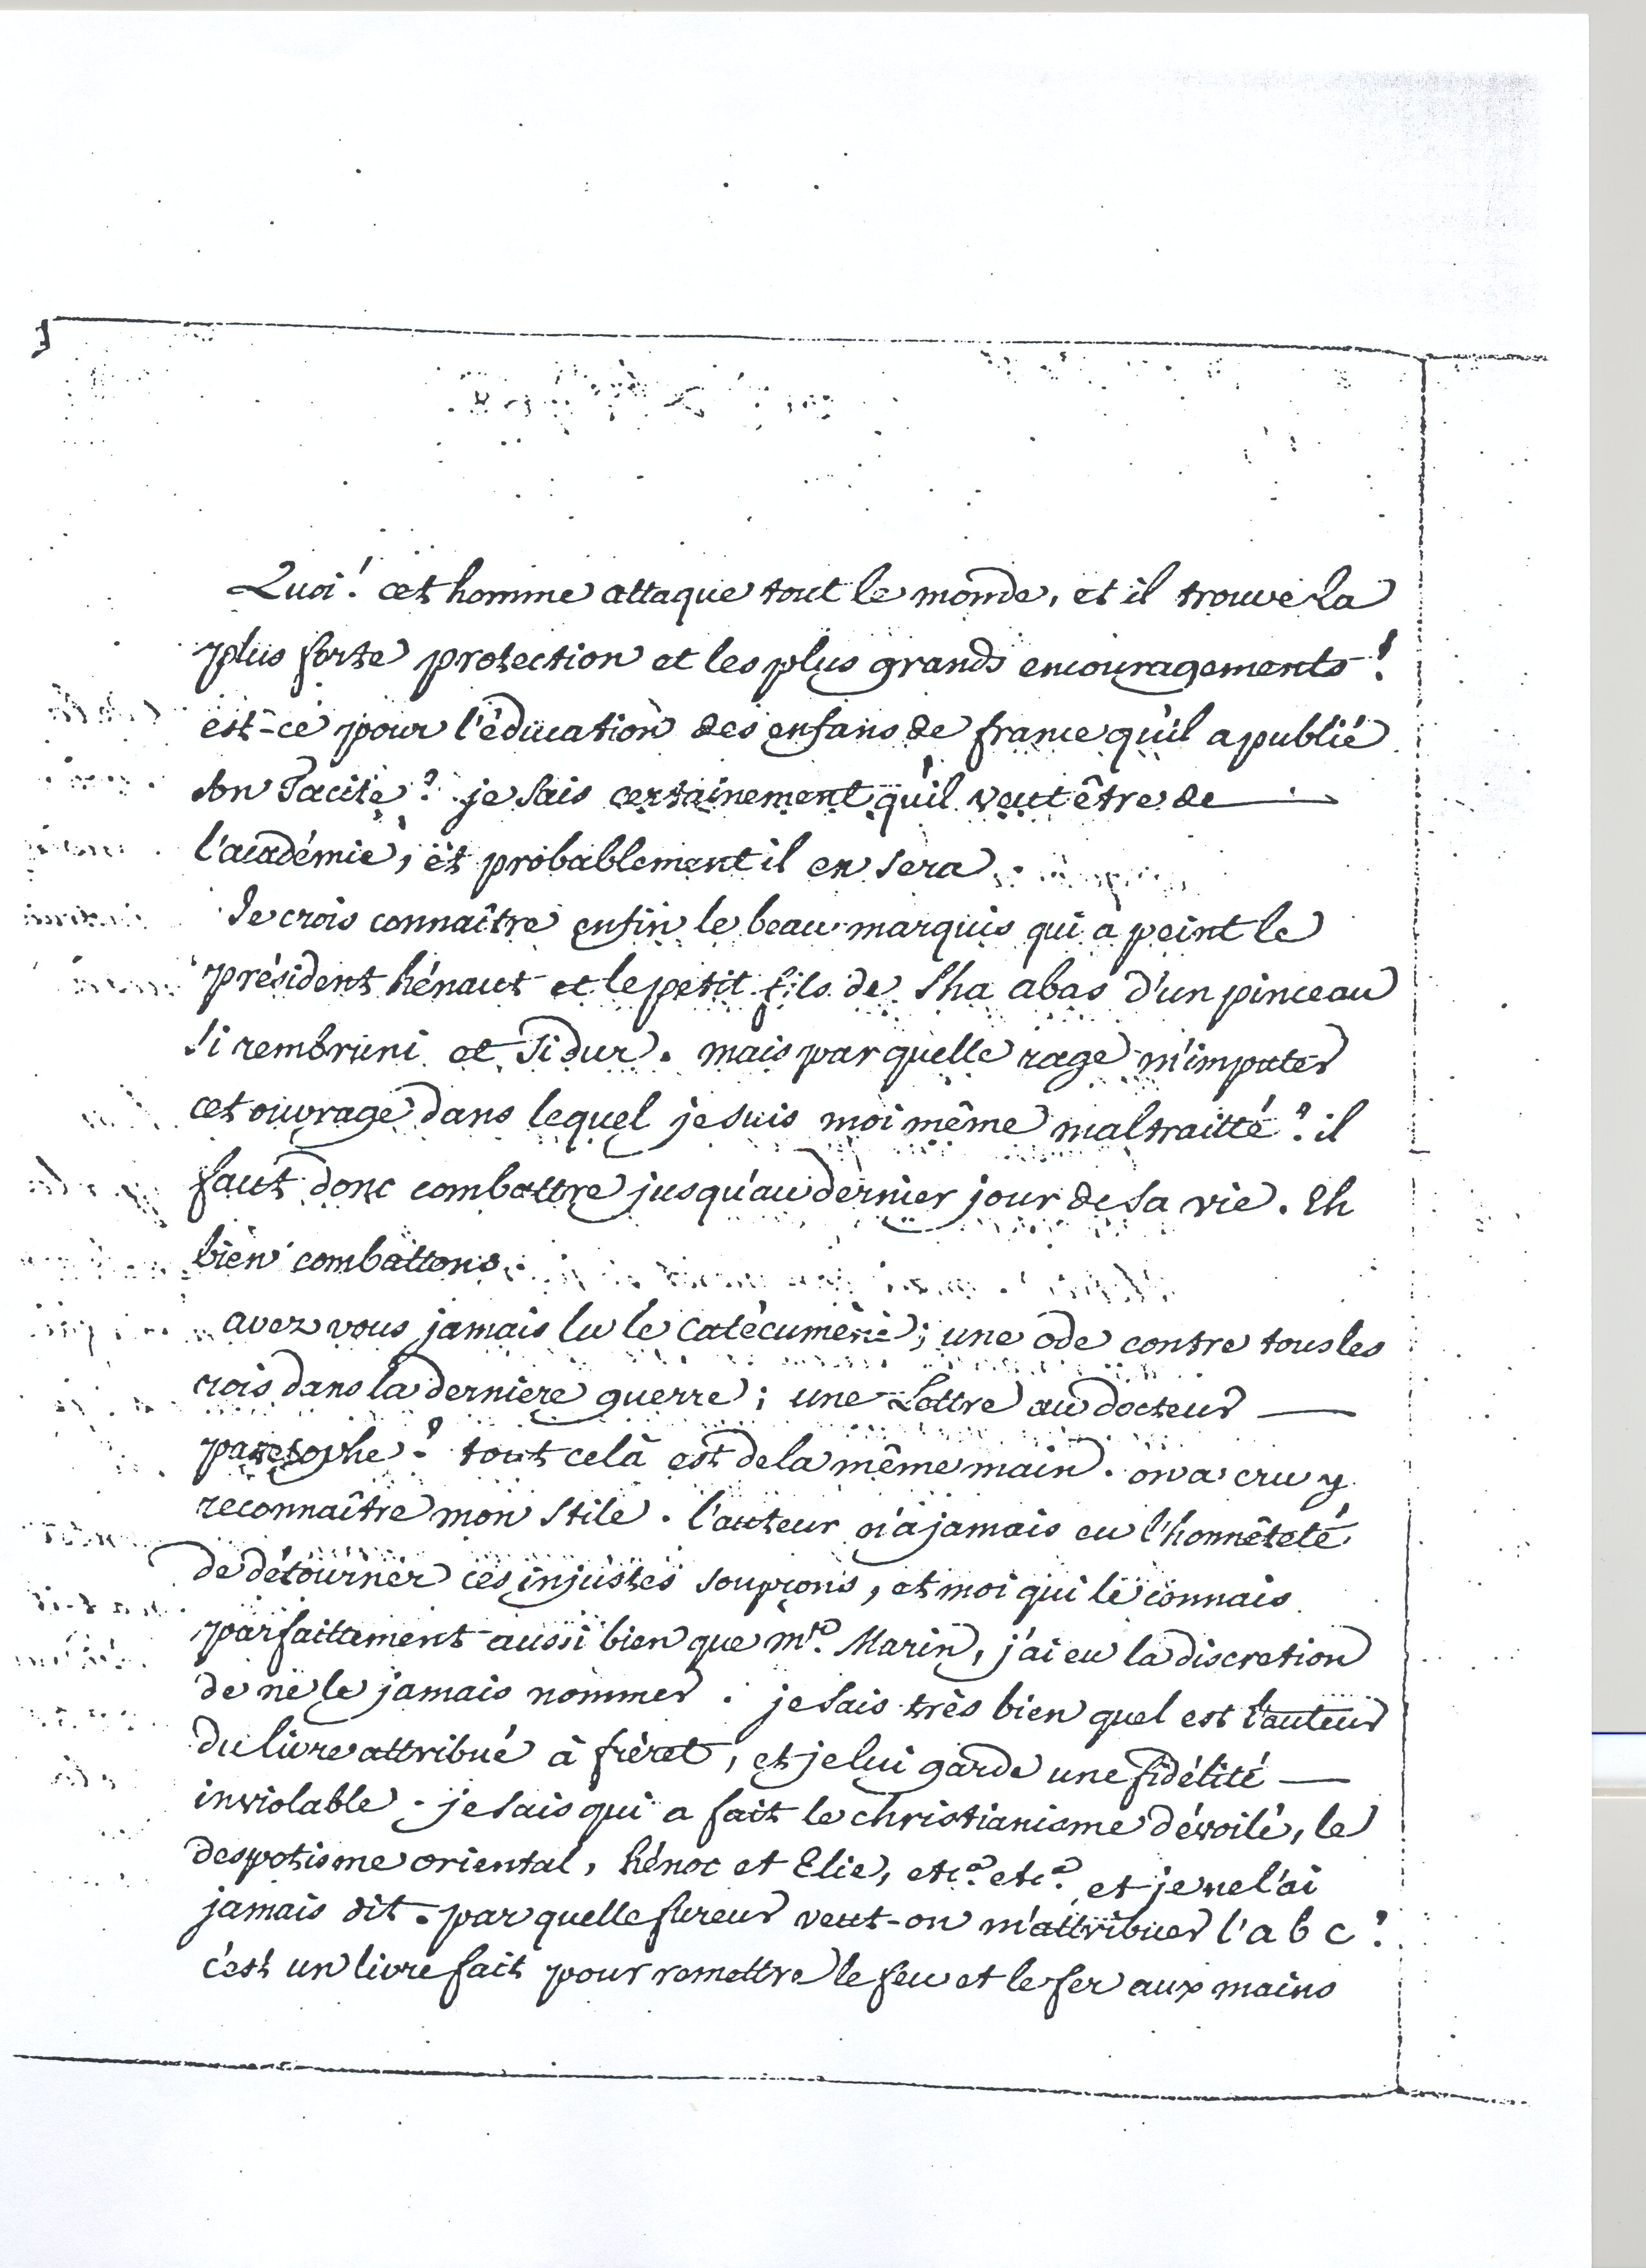 Quoi! cet homme attaque tout le monde, et il trouve la
plus forte protection et les plus grands encouragements!
est-ce pour l'éducation des enfans de france qu'il a publié
son Tacite? je sais certainement qu'il veut être de
l'académie, et probablement il en sera.
Je crois connaître enfin le beau marquis qui a peint le
président hénaut et le petit fils de Sha abas d'un pinceau
si rembruni et si dur. mais par quelle rage m'imputer
cet ouvrage dans lequel je suis moi même maltraitté? il
faut donc combattre jusqu'au dernier jour de sa vie. Eh
bien combattons.
avez vous jamais lu le Catécumène; une ode contre tous les
rois dans la derniere guerre; une Lettre au docteur
pansophe? tout celà est de la même main. on a cru y
reconnaître mon stile. l'auteur n'a jamais eu l'honnêteté
de détourner ces injustes soupçons, et moi qui le connais
parfaittement aussi bien que mr. Marin, j'ai eu la discretion
de ne le jamais nommer. je sais très bien quel est l'auteur
du livre attribué à fréret, et je lui garde une fidélité
inviolable. je sais qui a fait le christianisme dévoilé, le
despotisme oriental, hénoc et Elie, etca. etca. et je ne l'ai
jamais dit. par quelle fureur veut-on m'attribuer l'a b c?
c'est un livre fait pour remettre le feu et le fer aux mains